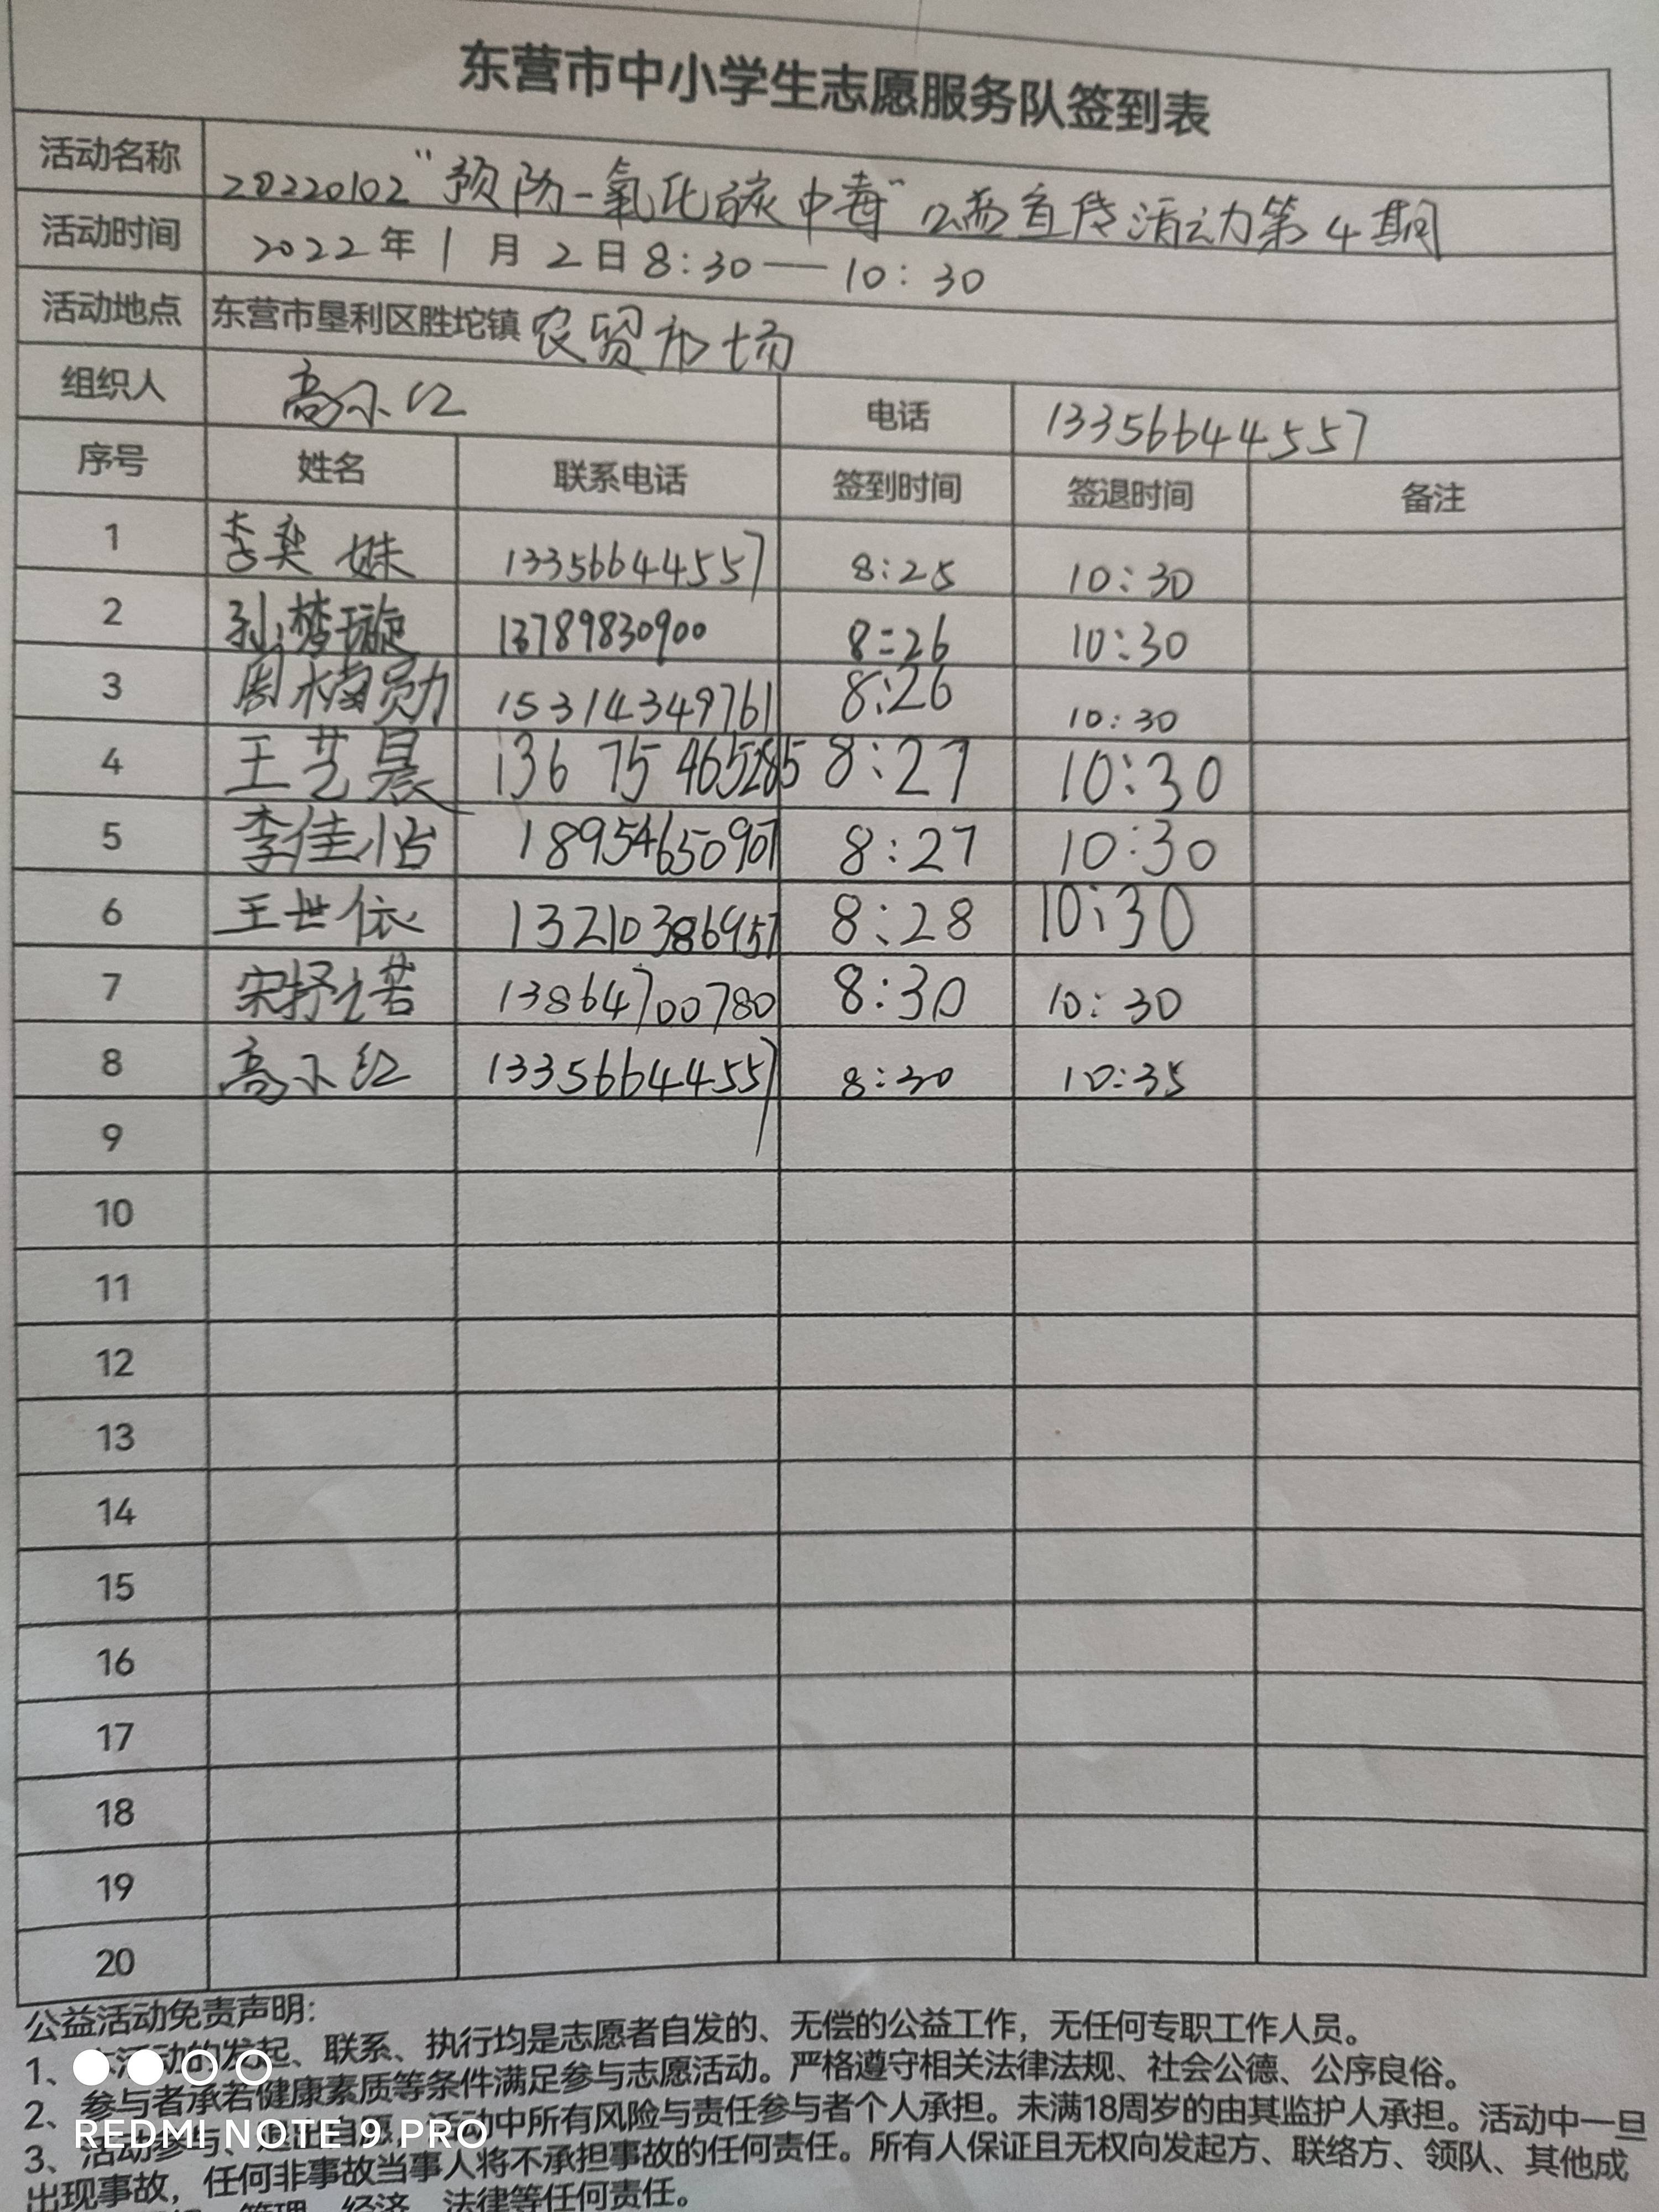 东营市中小学生志愿服务队签到表
活动名称 20220102“预防一氧化碳中毒”公益宣传活动第4期
活动时间 2022年1月2日8:30—10:30
活动地点 东营市垦利区胜坨镇农贸市场
组织人 高小红 电话 13356644557
序号 姓名 联系电话 签到时间 签退时间 备注
1 李奕姝 13356644557 8:25 10:30
2 孙梦璇 13789830900 8:26 10:30
3 周楠勋 15314349761 8:26 10:30
4 王艺晨 13675465285 8:27 10:30
5 李佳怡 18954650907 8:27 10:30
6 王世依 13210386957 8:28 10:30
7 宋抒若 13864700780 8:30 10:30
8 高小红 13356644557 8:30 10:35
9
10
11
12
13
14
15
16
17
18
19
20
公益活动免责声明：
1、本活动的发起、联系、执行均是志愿者自发的、无偿的公益工作，无任何专职工作人员。
2、参与者承若健康素质等条件满足参与志愿活动。严格遵守相关法律法规、社会公德、公序良俗。
3、活动参与、退出自愿，活动中所有风险与责任参与者个人承担。未满18周岁的由其监护人承担。活动中一旦
出现事故，任何非事故当事人将不承担事故的任何责任。所有人保证且无权向发起方、联络方、领队、其他成
管理、经济、法律等任何责任。
REDMI NOTE 9 PRO